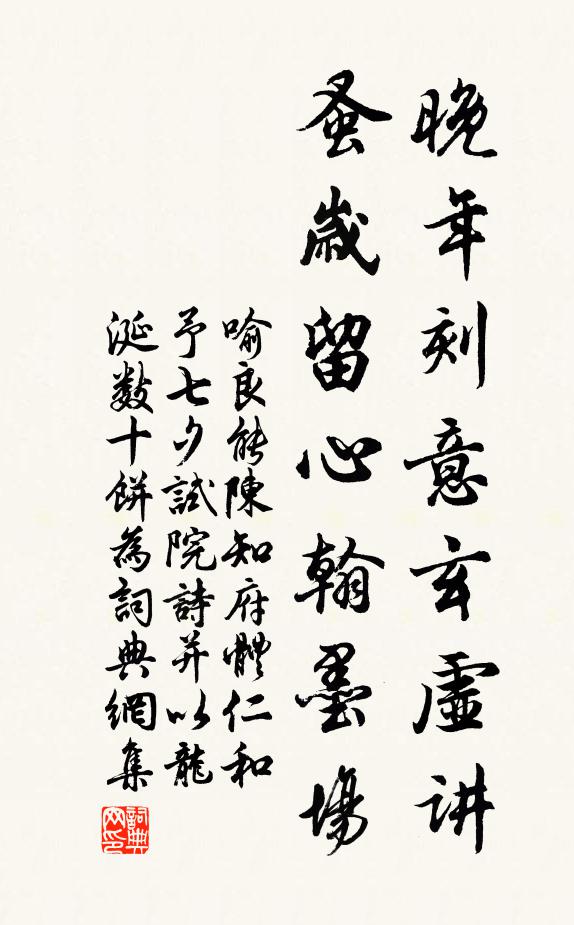 晚年刻意玄虛讲
蚤歲留心翰墨場
喻良能陳知府體仁和
予七夕試院詩并以龍
涎数十餅為詞典網集
詞典网印